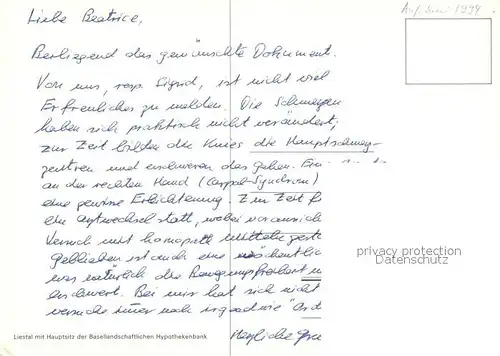 Auf. Juni 1994
Liebe Beatrice,
Beiliegend das gewünschte Dokument.
Von uns, resp. Sigrid, ist nicht viel
Erfreuliches zu melden. Die Schmerzen
haben sich praktisch nicht verändert;
zur Zeit bilden die Knies die Hauptschmerz-
zentren und erschweren das gehen. Ein
an der rechten Hand (Carpal-Syndrom)
eine gewisse Erleichterung. Zur Zeit f
ein Arztwechsel statt, wobei voraussich
Versuch mit homöopath Mitteln gesta
Geblieben ist auch eine wöchentlic
was natürlich die Bewegungsfreiheit
erschwert. Bei mir hat sich nicht
versuche immer noch irgendwie
Herzliche Grü
privacy protection
Datenschutz
Liestal mit Hauptsitz der Basellandschaftlichen Hypothekenbank